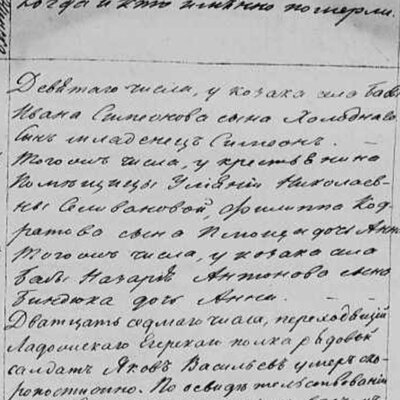 когда и кто имѣнно померли.
Девятаго числа, у козака села Бабъ
Ивана Симеонова сына Холоднаго
сынъ младенецъ Симеонъ.
Тогожъ числа, у крестьянина
Помѣщицы Николаев-
ны Селивановой Филиппа Код-
ратова сына дочь Анна
Тогожъ числа, у козака села
Бабъ Назарія Антонова сына
Биндюка дочь Анна.
Дватцать седмаго числа, переходящій
Ладожскаго Егерскаго полка рядовый
солдатъ Яковъ Васильевъ умеръ ско-
ропостижно. По освидѣтельствованіи